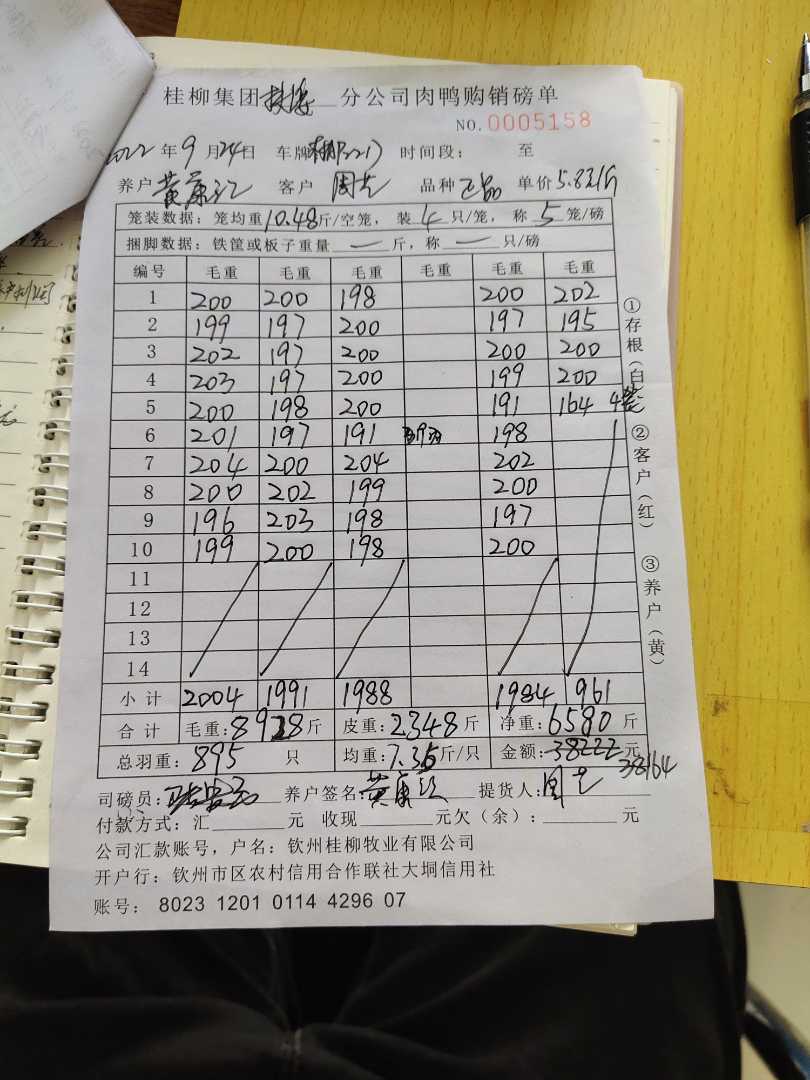 桂柳集团 分公司肉鸭购销磅单
NO.0005158
2022年9月24日 车牌 时间段: 至
养户 黄康江 客户 周 品种 正品 单价5.8元/斤
笼装数据: 笼均重10.48斤/空笼, 装4只/笼, 称5笼/磅
捆脚数据: 铁筐或板子重量 — 斤, 称 — 只/磅
编号 毛重 毛重 毛重 毛重 毛重 毛重
1 200 200 198 200 202
2 199 197 200 197 195
3 202 197 200 200 200
4 203 197 200 199 200
5 200 198 200 191 164 4笼
6 201 197 191 198
7 204 200 204 202
8 200 202 199 200
9 196 203 198 197
10 199 200 198 200
11
12
13
14
小计 2004 1991 1988 1984 961
合计 毛重:8928斤 皮重:2348斤 净重:6580斤
总羽重: 895 只 均重:7.35斤/只 金额:38222元
38164
司磅员: 养户签名:黄康江 提货人:周
付款方式: 汇 元 收现 元欠(余): 元
公司汇款账号, 户名: 钦州桂柳牧业有限公司
开户行: 钦州市区农村信用合作联社大垌信用社
账号: 8023 1201 0114 4296 07
①存根(白)
②客户(红)
③养户(黄)